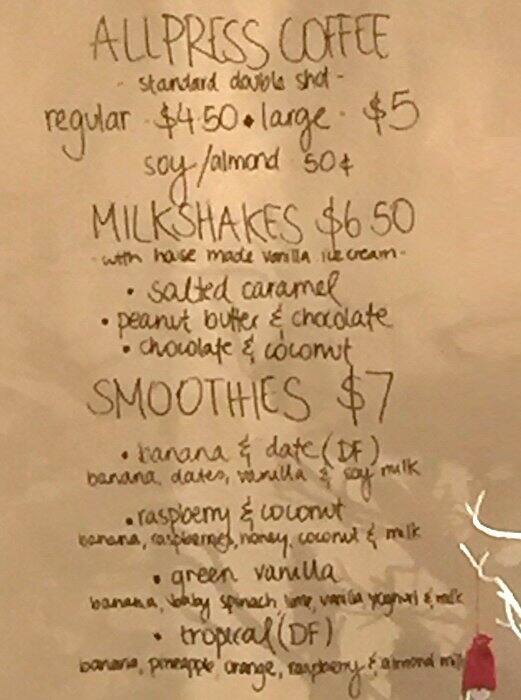 ALLPRESS COFFEE
- standard double shot -
regular · $4.50 • large · $5
soy/almond 50¢
MILKSHAKES $6.50
- with house made vanilla ice cream -
• salted caramel
• peanut butter & chocolate
• chocolate & coconut
SMOOTHIES $7
• banana & date (DF)
banana, dates, vanilla & soy milk
• raspberry & coconut
banana, raspberries, honey, coconut & milk
• green vanilla
banana, baby spinach, lime, vanilla yoghurt & milk
• tropical (DF)
banana, pineapple orange, raspberry & almond milk